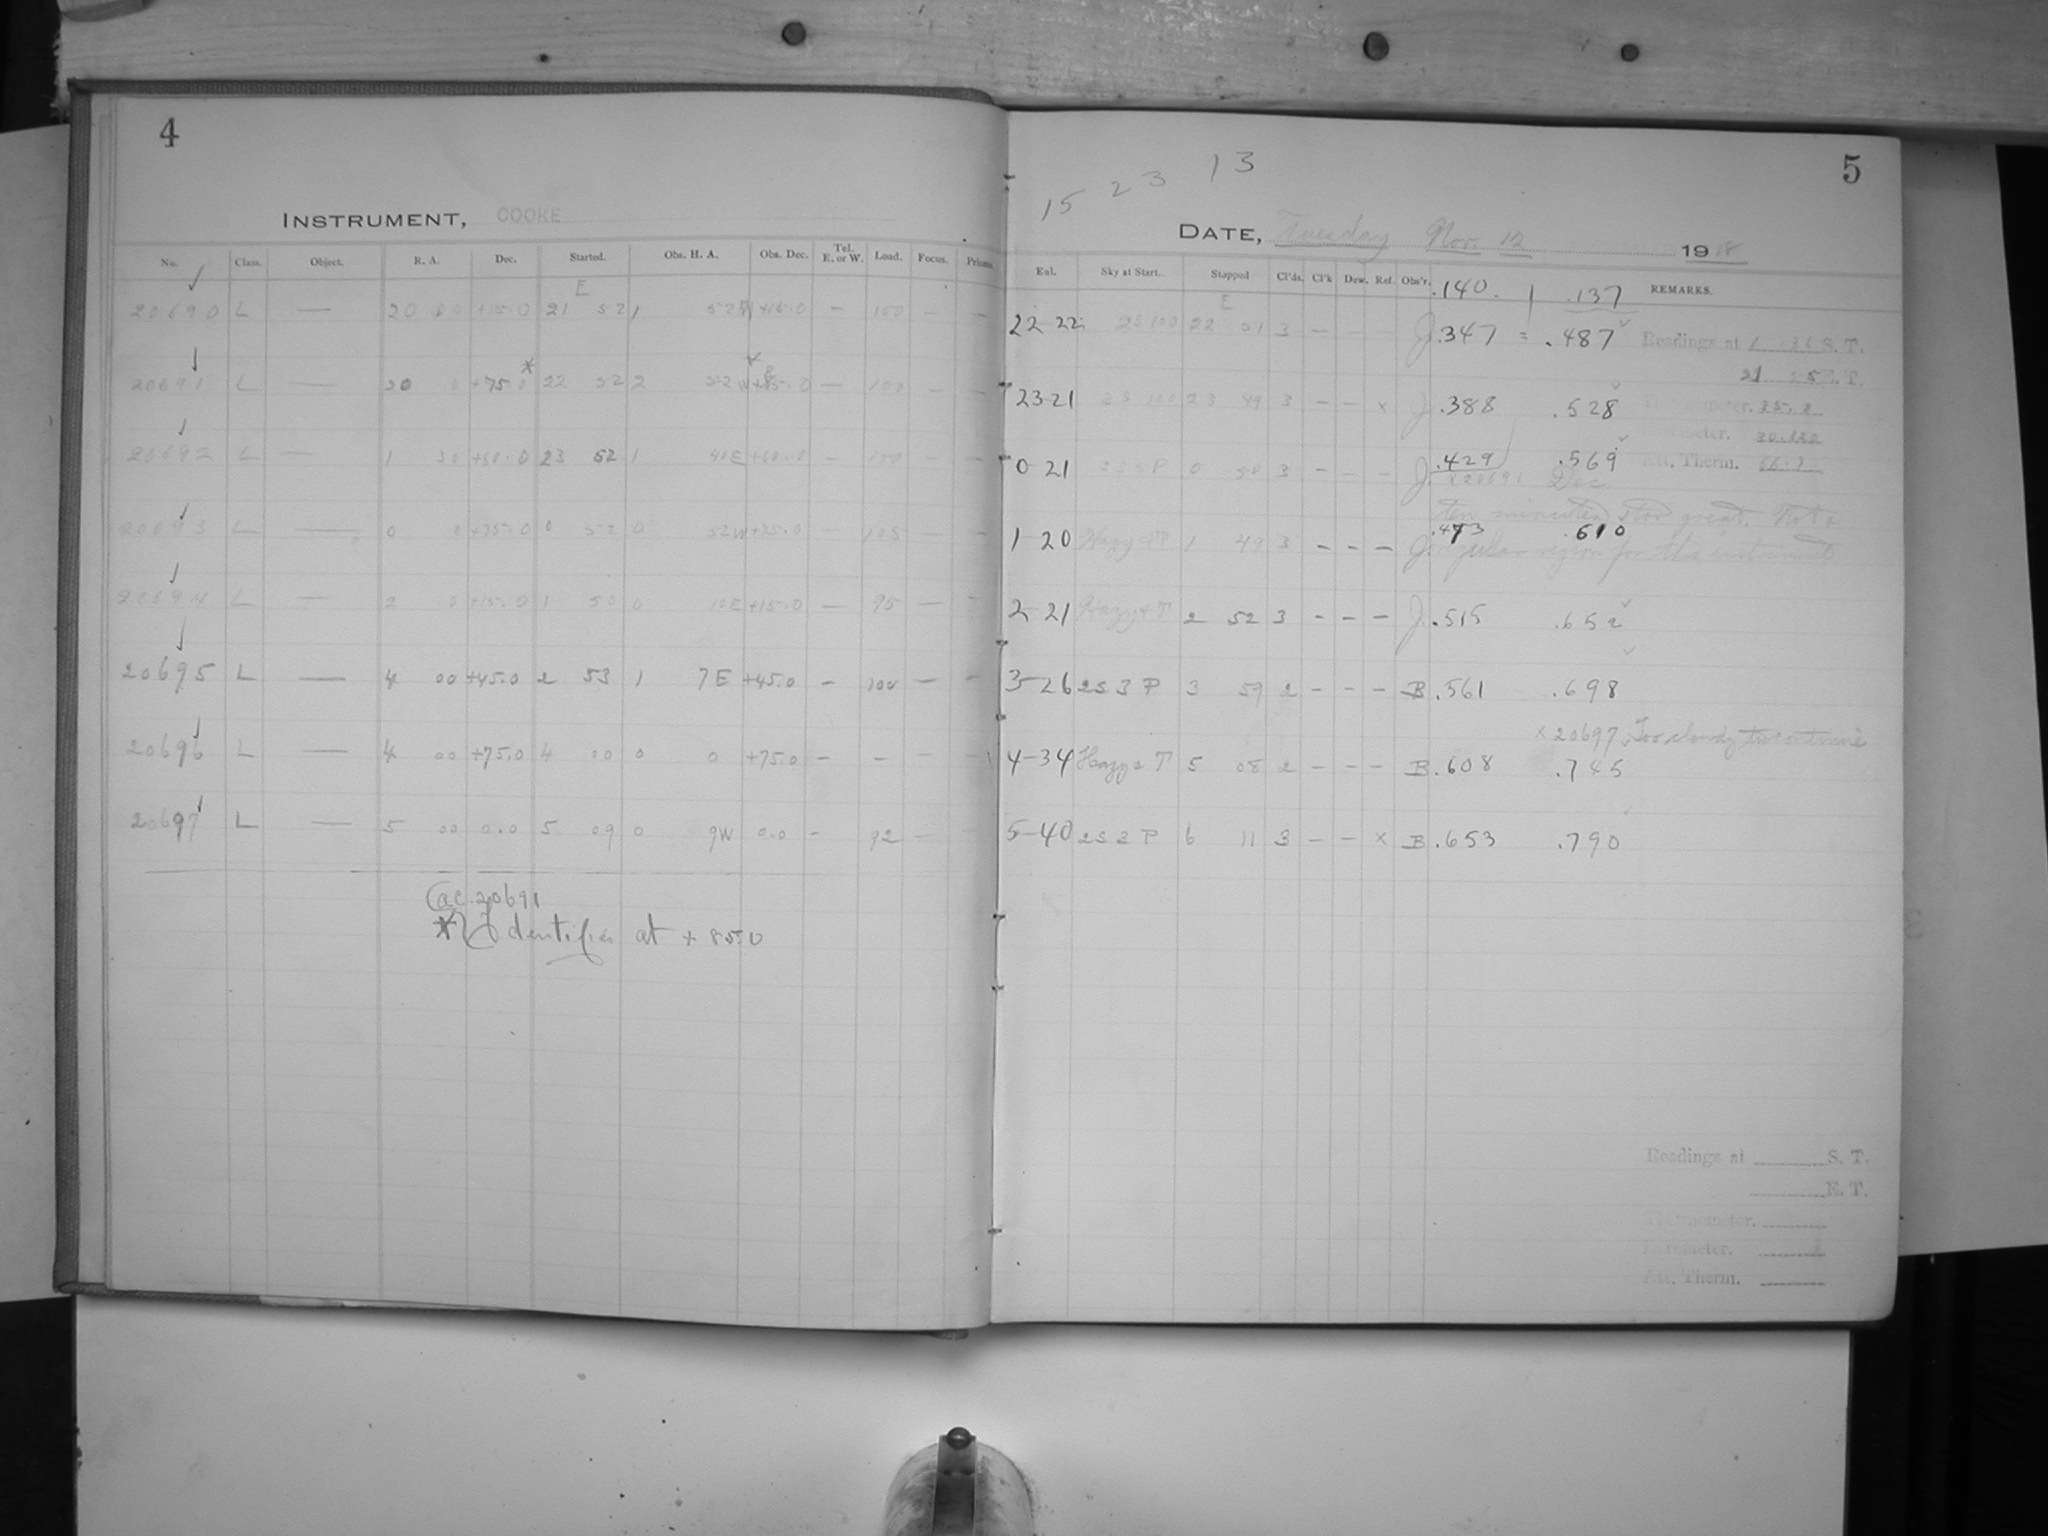 4
INSTRUMENT, COOKE
No. Class. Object. R. A. Dec. Started. Obs. H. A. Obs. Dec. Tel. E. or W. Load. Focus. Prisms.
E
20690 L — 20 00 +15.0 21 52 1 52W +15.0 — 100 — —
20691 L — 20 0 +75.0* 22 52 2 52W +85.0 — 100 — —
20692 L — 1 30 +60.0 23 52 1 40E +60.0 — 100 — —
20693 L — 0 0 +75.0 0 52 0 52W +75.0 — 105 — —
20694 L — 2 0 +15.0 1 50 0 10E +15.0 — 95 — —
20695 L — 4 00 +45.0 2 53 1 7E +45.0 — 100 — —
20696 L — 4 00 +75.0 4 00 0 0 +75.0 — — — —
20697 L — 5 00 0.0 5 09 0 9W 0.0 — 92 — —
ac. 20691
* Identifies at + 85.0
5
15 23 13
DATE, Tuesday Nov. 12 1918
Exl. Sky at Start. Stopped Cl'ds. Cl'k Dew. Ref. Obs'r. .140. | .137 REMARKS.
E
22-22 2S 100 22 51 3 — — — J .347 = .487 Readings at 1 S. T.
21 55 E. T.
23-21 49 3 — — x J .388 .528 Thermometer. 35.2
Barometer. 30.
0-21 0 50 3 — — — J .429 .569 Att. Therm.
x 20691 Dec
ten minutes too great. Not a
1-20 Hazy & T 1 49 3 — — — J .473 .610
regular region for this instrument
2-21 Hazy & T 2 52 3 — — — J .515 .652
3-26 2S 3 P 3 59 2 — — — B .561 .698
x 20697, Too cloudy to continue
4-34 Hazy & T 5 08 2 — — — B .608 .745
5-40 2S 2 P 6 11 3 — — x B .653 .790
Readings at S. T.
E. T.
Thermometer.
Barometer.
Att. Therm.